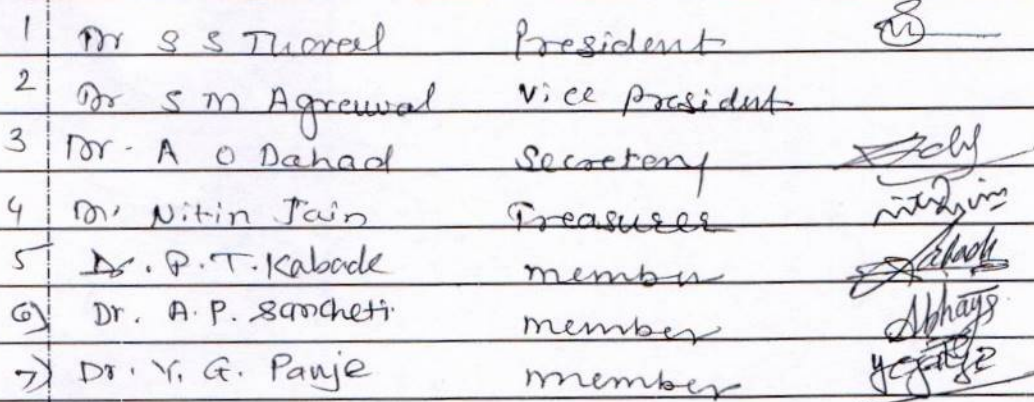 1 Dr S S Thorat President
2 Dr S M Agrawal Vice president
3 Dr. A O Dahad Secretary
4 Dr. Nitin Jain Treasurer
5 Dr. P. T. Kabade member
6) Dr. A. P. Sancheti member Abhays
7) Dr. Y. G. Panje member